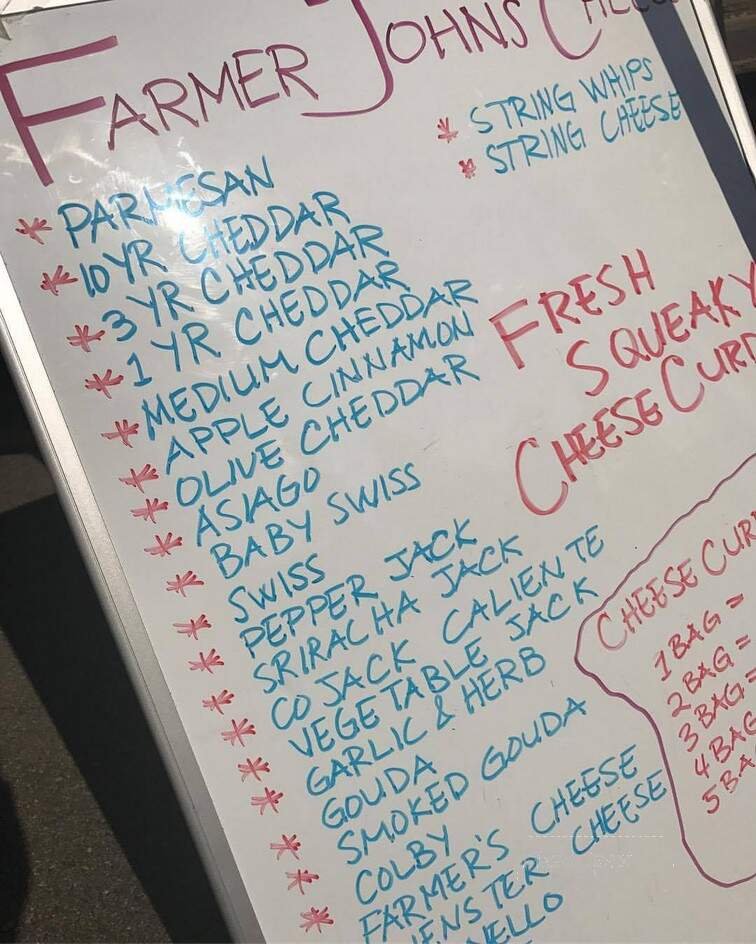 FARMER JOHNS
* STRING WHIPS
* STRING CHEESE
* PARMESAN
* 10 YR CHEDDAR
* 3 YR CHEDDAR
* 1 YR CHEDDAR
* MEDIUM CHEDDAR
* APPLE CINNAMON
* OLIVE CHEDDAR
* ASIAGO
* BABY SWISS
* SWISS
* PEPPER JACK
* SRIRACHA JACK
* COJACK CALIENTE
* VEGETABLE JACK
* GARLIC & HERB
* GOUDA
* SMOKED GOUDA
* COLBY
* FARMER'S CHEESE
CHEESE
FRESH
SQUEAKY
CHEESE CURD
CHEESE CUR
1 BAG =
2 BAG =
3 BAG =
4 BAG
5 BA